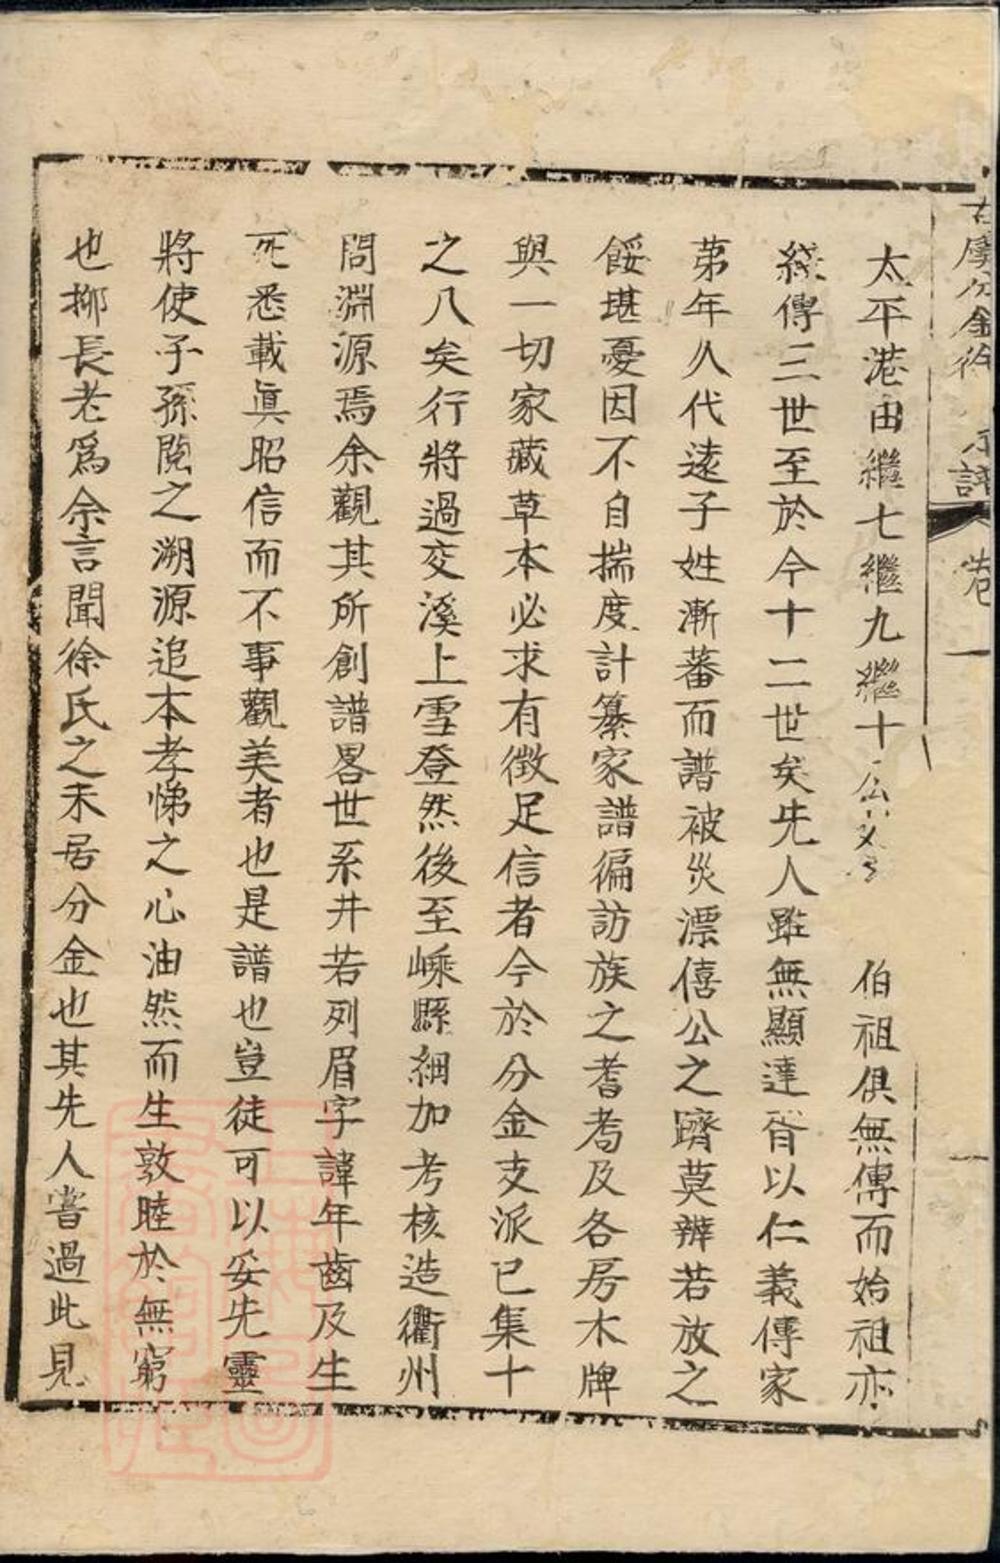 太平港由繼七繼九繼十公 伯祖俱無傳而始祖亦
綫傳三世至於今十二世矣先人雖無顯達胥以仁義傳家
苐年久代遠子姓漸蕃而譜被災漂僖公之躋莫辨若放之
餒堪憂因不自揣度計纂家譜徧訪族之耆耇及各房木牌
與一切家藏草本必求有徵足信者今於分金支派已集十
之八矣行將過交溪上雪登然後至嵊縣細加考核造衢州
問淵源焉余觀其所創譜畧世系井若列眉字諱年齒及生
死悉載眞昭信而不事觀美者也是譜也豈徒可以妥先靈
將使子孫閱之溯源追本孝悌之心油然而生敦睦於無窮
也抑長老爲余言聞徐氏之未居分金也其先人嘗過此見
虞分金徐 譜 卷一 一